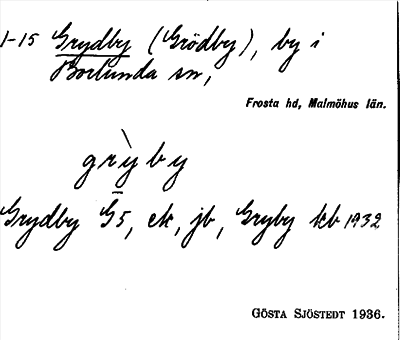 1-15 Grydby (Grödby), by i
Borlunda sn,
Frosta hd, Malmöhus län.
grỳby
Grydby G5, ek, jb, Gryby kb 1932
GÖSTA SJÖSTEDT 1936.